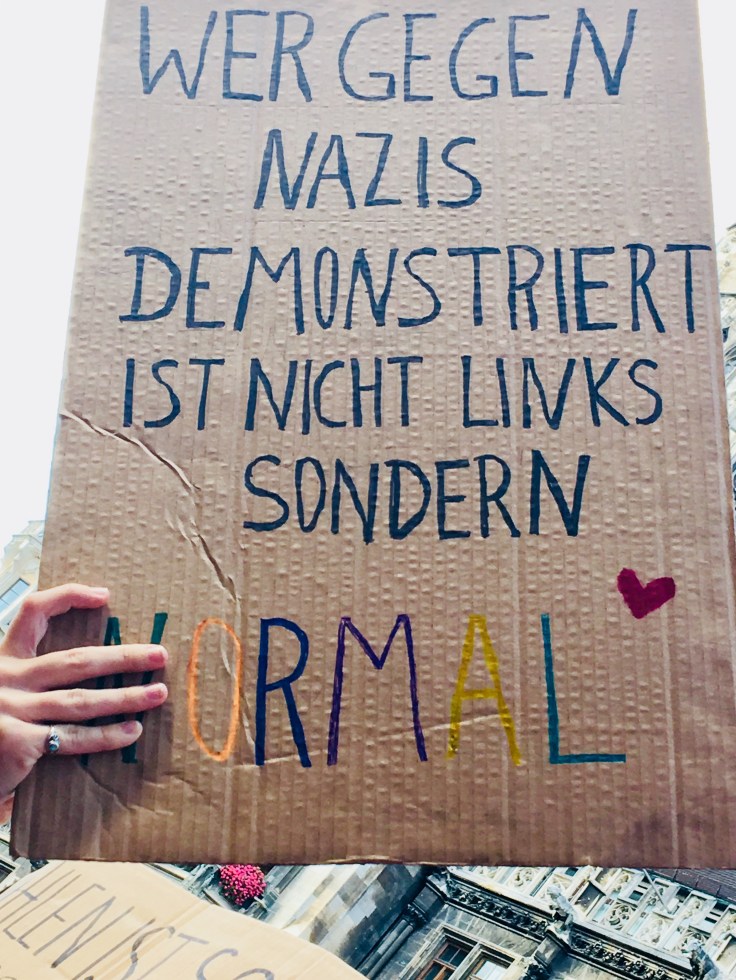 WER GEGEN
NAZIS
DEMONSTRIERT
IST NICHT LINKS
SONDERN
NORMAL
IST